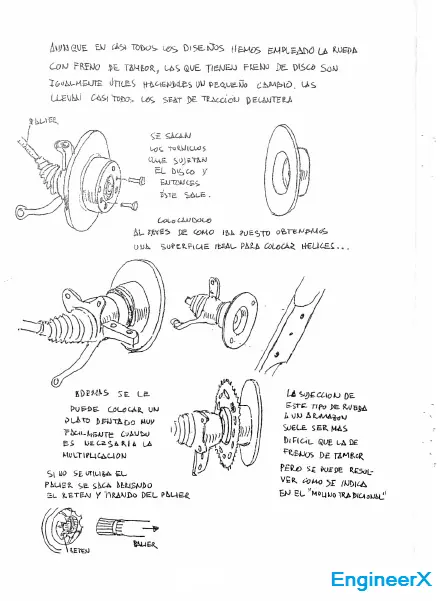 AUNQUE EN CASI TODOS LOS DISEÑOS HEMOS EMPLEADO LA RUEDA
CON FRENO DE TAMBOR, LAS QUE TIENEN FRENO DE DISCO SON
IGUALMENTE ÚTILES HACIENDLES UN PEQUEÑO CAMBIO. LAS
LLEVAN CASI TODOS LOS SEAT DE TRACCION DELANTERA
PALIER
SE SACAN
LOS TORNILLOS
QUE SUJETAN
EL DISCO Y
ENTONCES
ÉSTE SALE.
COLOCANDOLO
AL REVES DE COMO IBA PUESTO OBTENEMOS
UNA SUPERFICIE IDEAL PARA COLOCAR HELICES...
ADEMAS SE LE
PUEDE COLOCAR UN
PLATO DENTADO MUY
FACILMENTE CUANDO
ES NECESARIA LA
MULTIPLICACION
SI NO SE UTILIZA EL
PALIER SE SACA ABRIENDO
EL RETEN Y TIRANDO DEL PALIER
LA SUJECCION DE
ESTE TIPO DE RUEDA
A UN ARMAZON
SUELE SER MAS
DIFICIL QUE LA DE
FRENOS DE TAMBOR
PERO SE PUEDE RESOL-
VER COMO SE INDICA
EN EL "MOLINO TRADICIONAL"
RETEN
PALIER
EngineerX